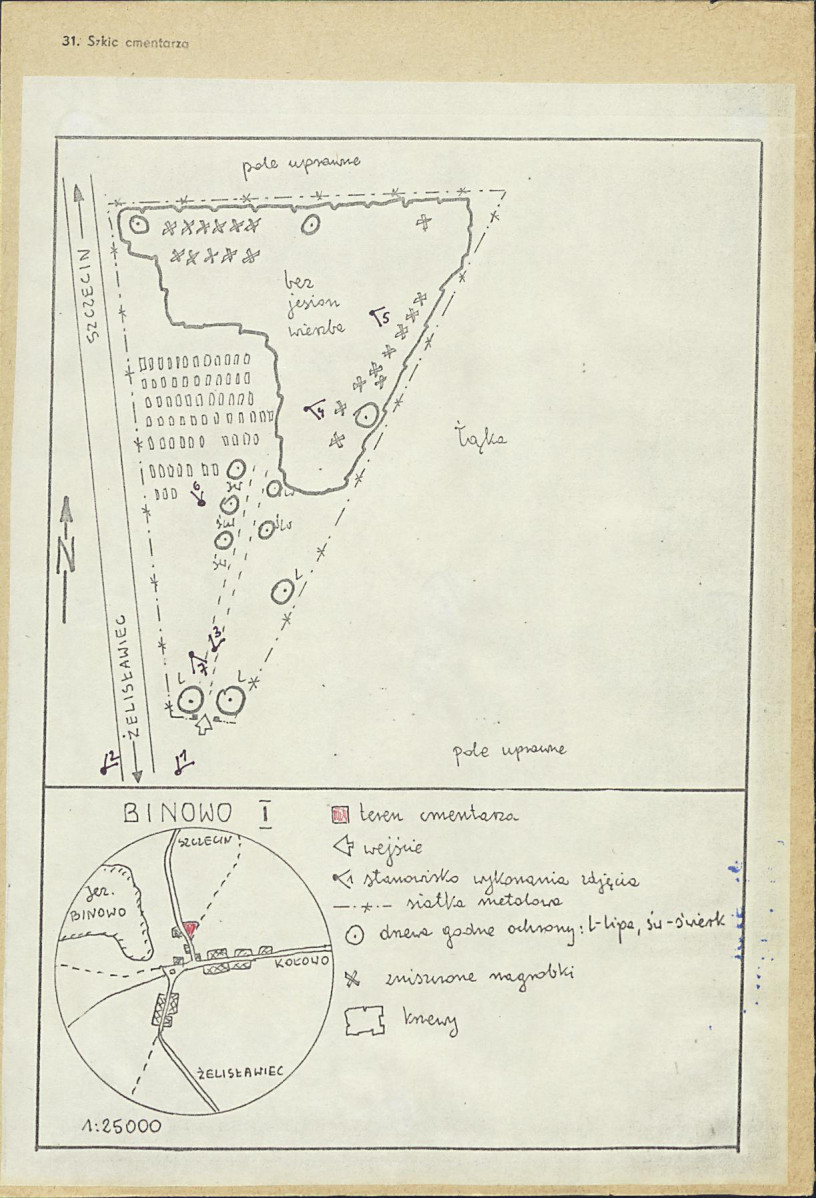 31. Szkic cmentarza
pole uprawne
SZCZECIN
bez
jesion
wierzba
5
4
Łąka
6
Św
Św
N
L
3
7
L
L
ŻELISŁAWIEC
2
1
pole uprawne
BINOWO I
SZCZECIN
jez.
BINOWO
KOŁOWO
ŻELISŁAWIEC
1:25000
teren cmentarza
wejście
1 stanowisko wykonania zdjęcia
siatka metalowa
drzewa godne ochrony: L-lipa, św-świerk
zniszczone nagrobki
krzewy